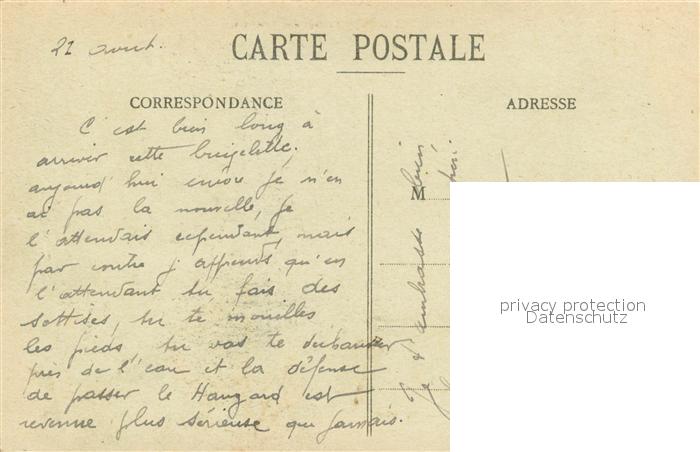 21 août.
CARTE POSTALE
CORRESPONDANCE
ADRESSE
C'est bien long à
arriver cette
aujourd'hui encore je n'en
ai pas la nouvelle, je
l'attendais cependant, mais
par contre j'apprends qu'en
l'attendant tu fais des
sottises, tu te mouilles
les pieds tu vas te
près de l'eau et la défense
de passer le Hangard est
revenue plus sérieuse que jamais.
M
Je t'embrasse bien
privacy protection
Datenschutz